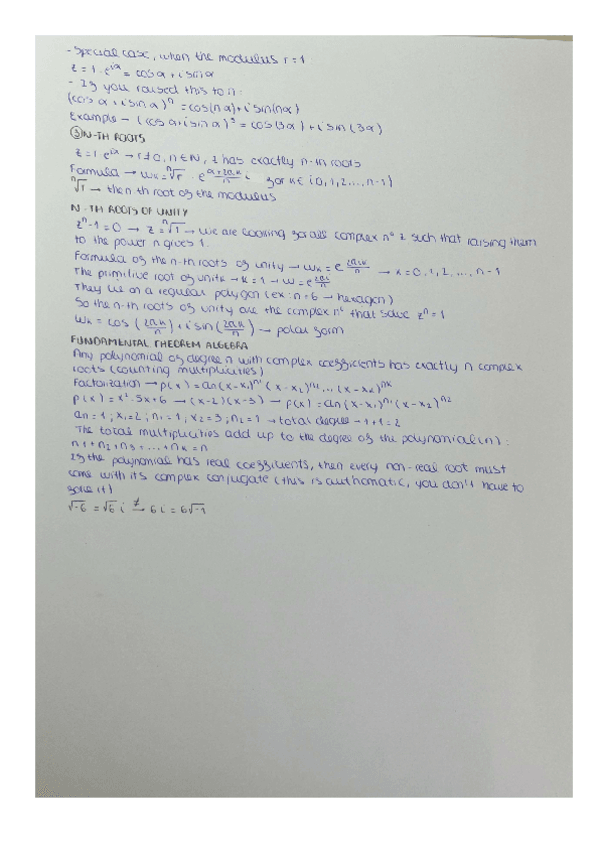 - Special case, when the modulus r = 1
z = 1 · e^iα = cos α + i sin α
- If you raised this to n:
(cos α + i sin α)^n = cos(n α) + i sin(n α)
Example - (cos α + i sin α)^3 = cos(3α) + i sin(3α)
N-TH ROOTS
z = 1 e^iα → r ≠ 0, n ∈ N, z has exactly n-th roots
Formula → w_k = ⁿ√r · e^(α+2πk/n) i for k ∈ {0, 1, 2, ..., n-1}
ⁿ√r → the n th root of the modulus
N-TH ROOTS OF UNITY
z^n - 1 = 0 → z = ⁿ√1 → we are looking for all complex nº z such that raising them
to the power n gives 1.
Formula of the n-th roots of unity → w_k = e^(2πk/n) → k = 0, 1, 2, ..., n-1
The primitive root of unity → k = 1 → w = e^(2π/n)
They lie on a regular polygon (ex: n = 6 → hexagon)
So the n-th roots of unity are the complex nº that solve z^n = 1
w_k = cos (2πk/n) + i sin (2πk/n) → polar form
FUNDAMENTAL THEOREM ALGEBRA
Any polynomial of degree n with complex coefficients has exactly n complex
roots (counting multiplicities)
Factorization → p(x) = an(x-x₁)^n1 (x-x₂)^n2 ... (x-xk)^nk
p(x) = x² - 5x + 6 → (x-2)(x-3) → p(x) = an(x-x₁)^n1 (x-x₂)^n2
an = 1; x₁ = 2; n₁ = 1; x₂ = 3; n₂ = 1 → total degree - 1+1 = 2
The total multiplicities add up to the degree of the polynomial (n):
n₁ + n₂ + n₃ + ... + nk = n
If the polynomial has real coefficients, then every non-real root must
come with its complex conjugate (this is authomatic, you don't have to
solve it)
√-6 = √6 i ≠→ 6i = 6√-1